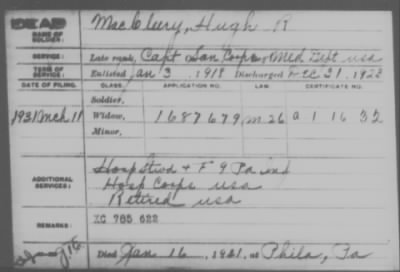 DEAD
NAME OF SOLDIER: MacCleery, Hugh R
SERVICE: Late rank, Capt San Corps, Med Dept usa
TERM OF SERVICE: Enlisted Jan 3, 1918 Discharged Dec 21, 1922
DATE OF FILING. CLASS. APPLICATION NO. LAW. CERTIFICATE NO.
Soldier,
1931 Mch 11 Widow, 1687679 m 26 a 1 16 32
Minor,
ADDITIONAL SERVICES: Hosp Stwd & F 9 Pa Inf
Hosp Corps usa
Retired usa
REMARKS: XC 785 622
Died Jan 16, 1931, at Phila, Pa